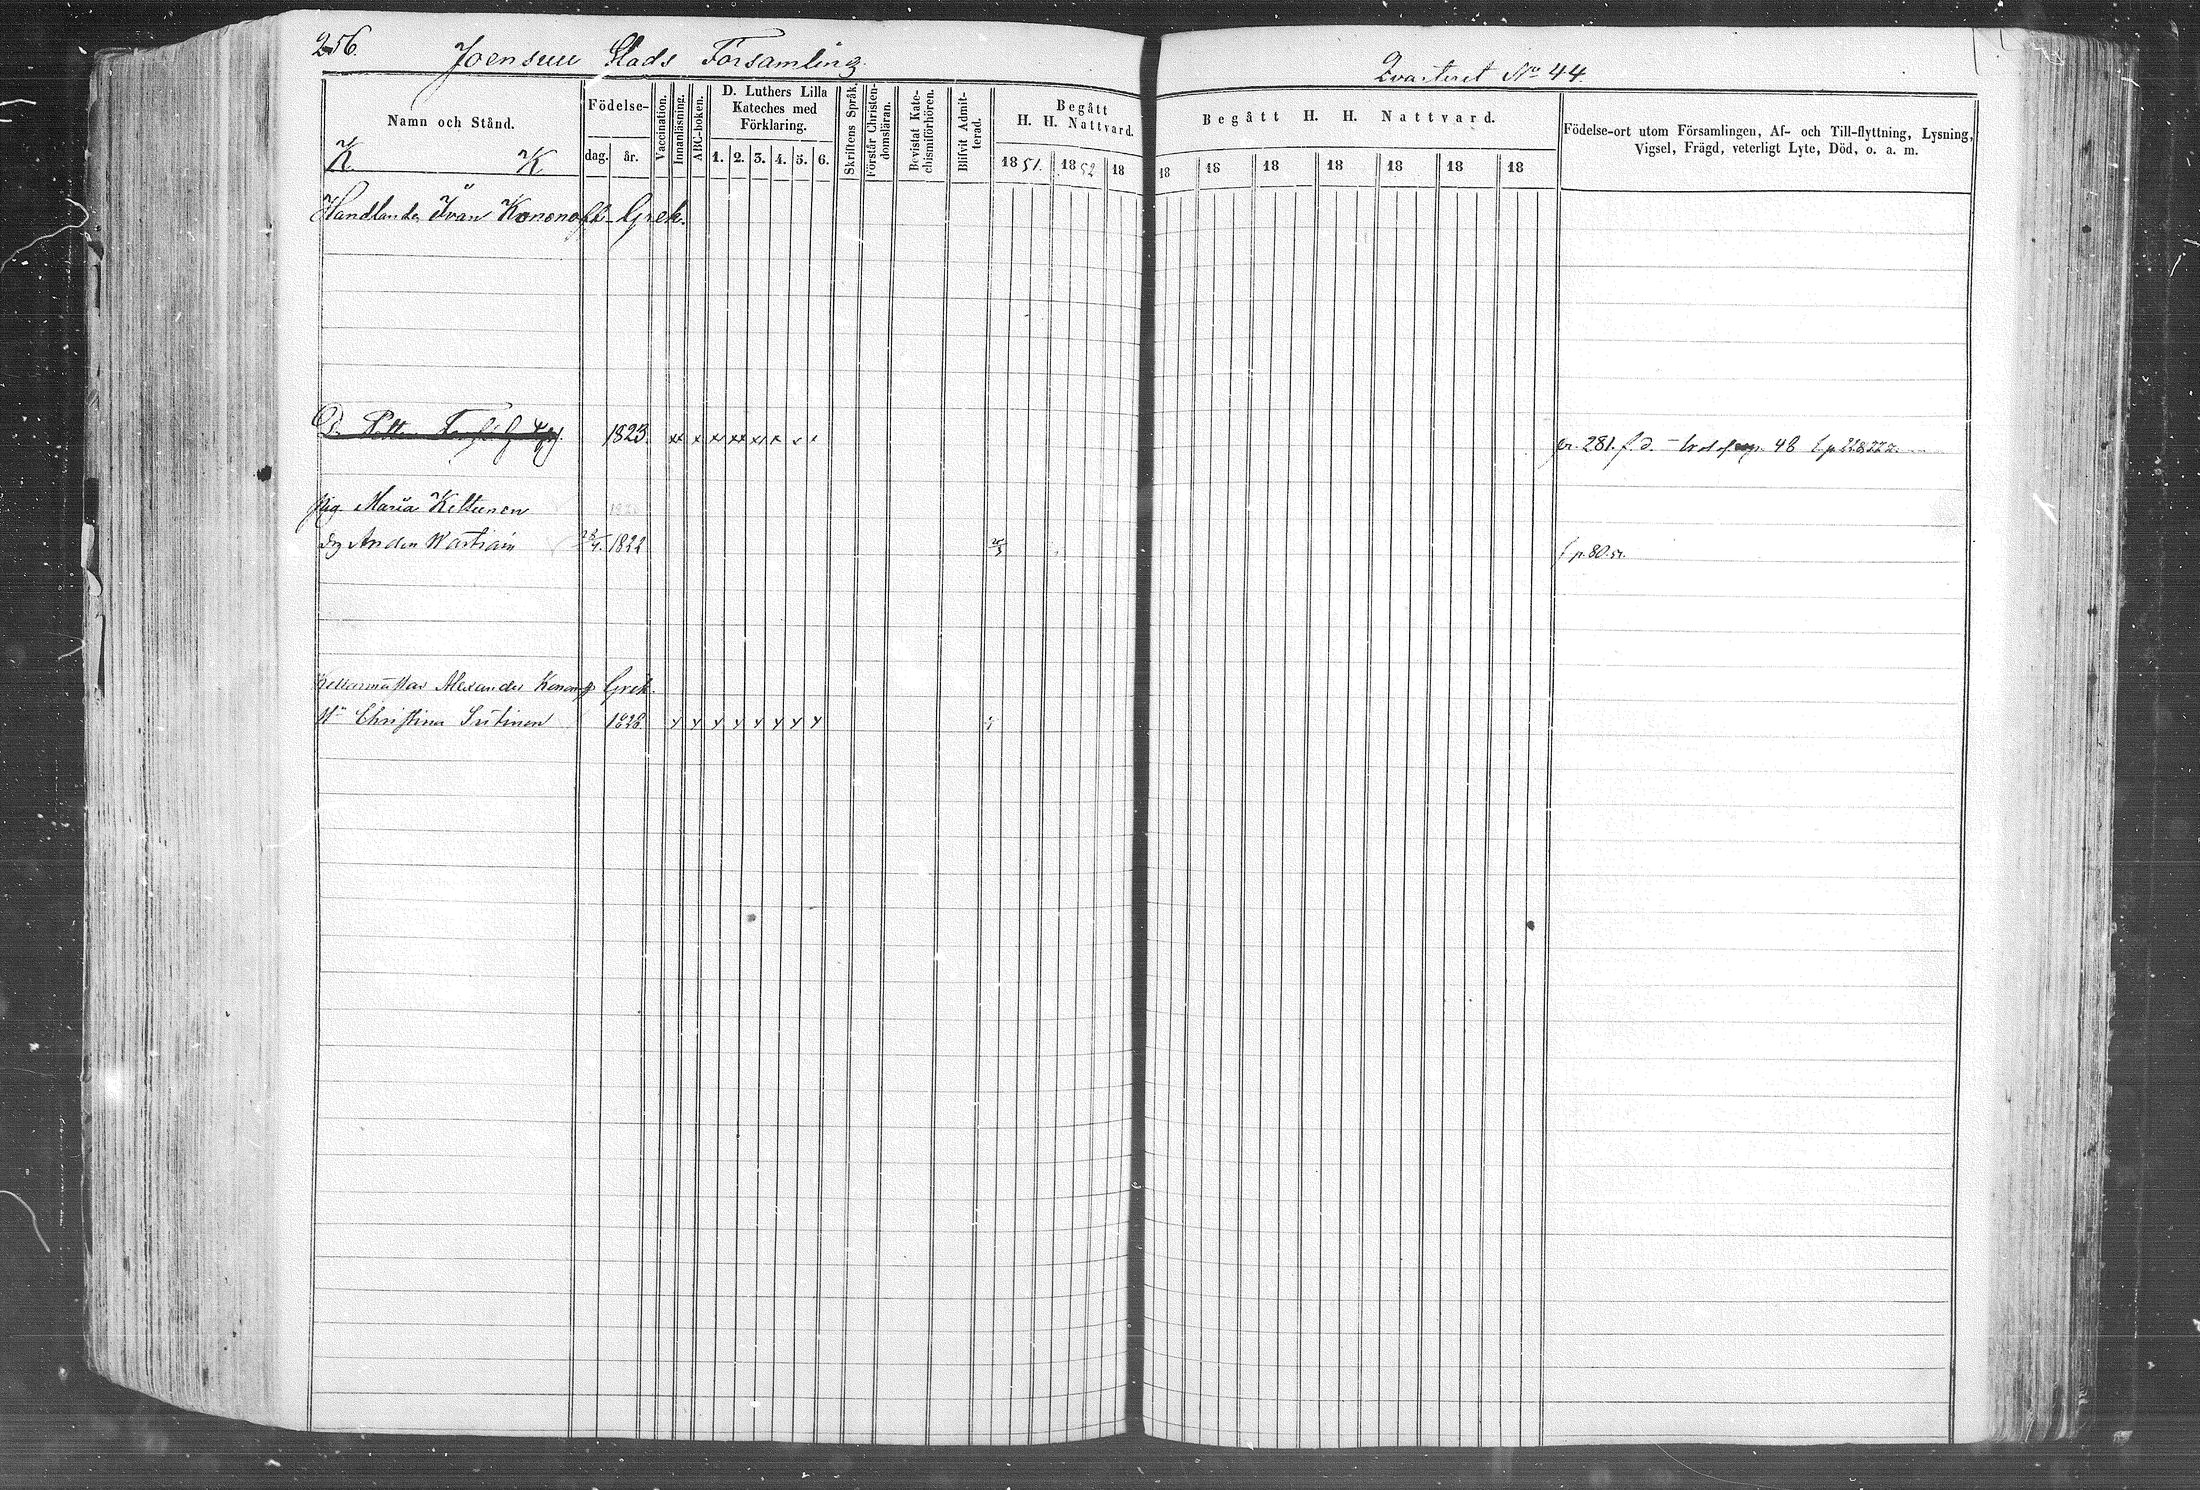 256.
Joensuu Stads Församling.
Qvarteret No 44
Namn och Stånd.
K. K
Födelse-
dag. år.
Vaccination.
Innanläsning.
ABC-boken.
D. Luthers Lilla
Kateches med
Förklaring.
1. 2. 3. 4. 5. 6.
Skriftens Språk.
Förstår Christen-
domsläran.
Bevistat Kate-
chismiförhören.
Blifvit Admit-
terad.
Begått
H. H. Nattvard.
1851. 1852 18
Begått H. H. Nattvard.
18 18 18 18 18 18 18
Födelse-ort utom Församlingen, Af- och Till-flyttning, Lysning,
Vigsel, Frägd, veterligt Lyte, Död, o. a. m.
Handlanden Ivan Kononoff - Grek.
1823. x x x x x x
fr. 281. f. d. 48
Pig Maria Kettunen
Drg Anders Wartiain 1822 p. 80. 51.
Källarmästar Alexander Kononoff Grek.
Christina Sutinen 1826 x x x x x x x x